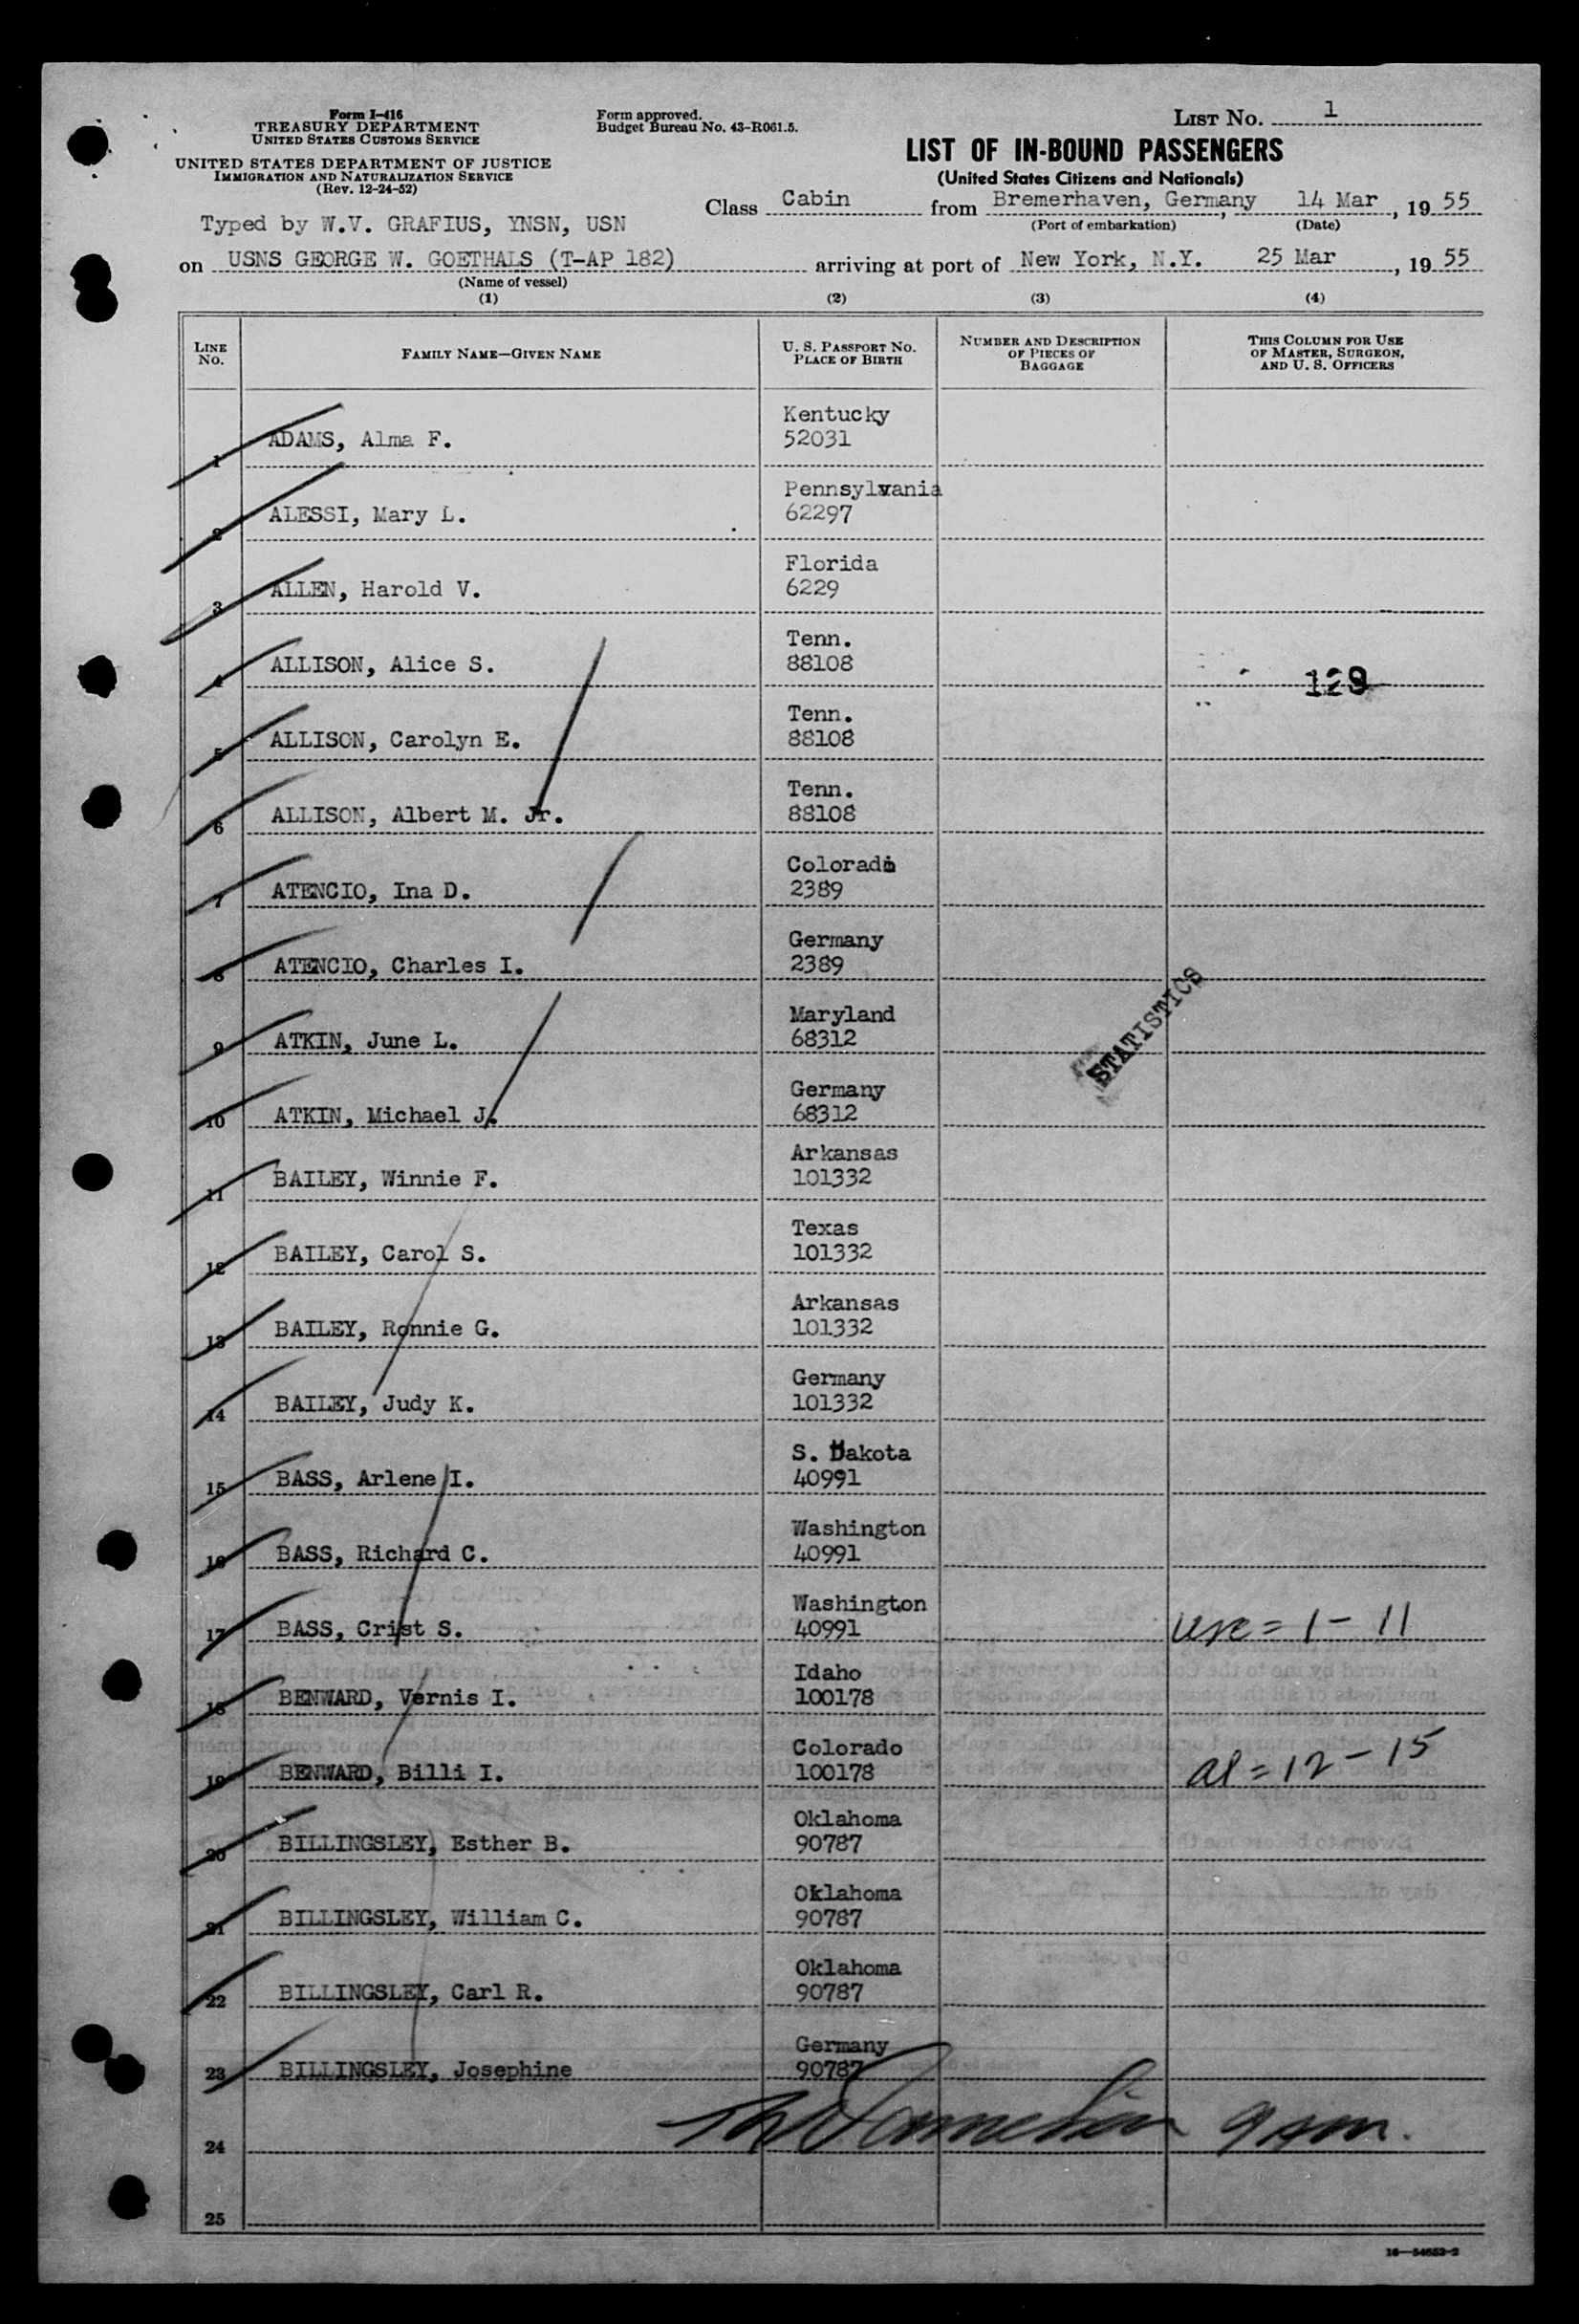 Form I-416
TREASURY DEPARTMENT
UNITED STATES CUSTOMS SERVICE
UNITED STATES DEPARTMENT OF JUSTICE
IMMIGRATION AND NATURALIZATION SERVICE
(Rev. 12-24-52)
Form approved.
Budget Bureau No. 43-R061.5.
LIST NO. 1
LIST OF IN-BOUND PASSENGERS
(United States Citizens and Nationals)
Typed by W.V. GRAFIUS, YNSN, USN
Class Cabin from Bremerhaven, Germany, 14 Mar, 19 55
(Port of embarkation) (Date)
on USNS GEORGE W. GOETHALS (T-AP 182) arriving at port of New York, N.Y. 25 Mar, 19 55
(Name of vessel)
(1) (2) (3) (4)
LINE NO. FAMILY NAME—GIVEN NAME U. S. PASSPORT NO. PLACE OF BIRTH NUMBER AND DESCRIPTION OF PIECES OF BAGGAGE THIS COLUMN FOR USE OF MASTER, SURGEON, AND U. S. OFFICERS
Kentucky
1 ADAMS, Alma F. 52031
Pennsylvania
2 ALESSI, Mary L. 62297
Florida
3 ALLEN, Harold V. 6229
Tenn.
4 ALLISON, Alice S. 88108
129
Tenn.
5 ALLISON, Carolyn E. 88108
Tenn.
6 ALLISON, Albert M. Jr. 88108
Colorado
7 ATENCIO, Ina D. 2389
Germany
8 ATENCIO, Charles I. 2389
STATISTICS
Maryland
9 ATKIN, June L. 68312
Germany
10 ATKIN, Michael J. 68312
Arkansas
11 BAILEY, Winnie F. 101332
Texas
12 BAILEY, Carol S. 101332
Arkansas
13 BAILEY, Ronnie G. 101332
Germany
14 BAILEY, Judy K. 101332
S. Dakota
15 BASS, Arlene I. 40991
Washington
16 BASS, Richard C. 40991
Washington
17 BASS, Crist S. 40991 usc = 1 - 11
Idaho
18 BENWARD, Vernis I. 100178
Colorado
19 BENWARD, Billi I. 100178 al = 12 - 15
Oklahoma
20 BILLINGSLEY, Esther B. 90787
Oklahoma
21 BILLINGSLEY, William C. 90787
Oklahoma
22 BILLINGSLEY, Carl R. 90787
Germany
23 BILLINGSLEY, Josephine 90787
24
25
16—54652-2